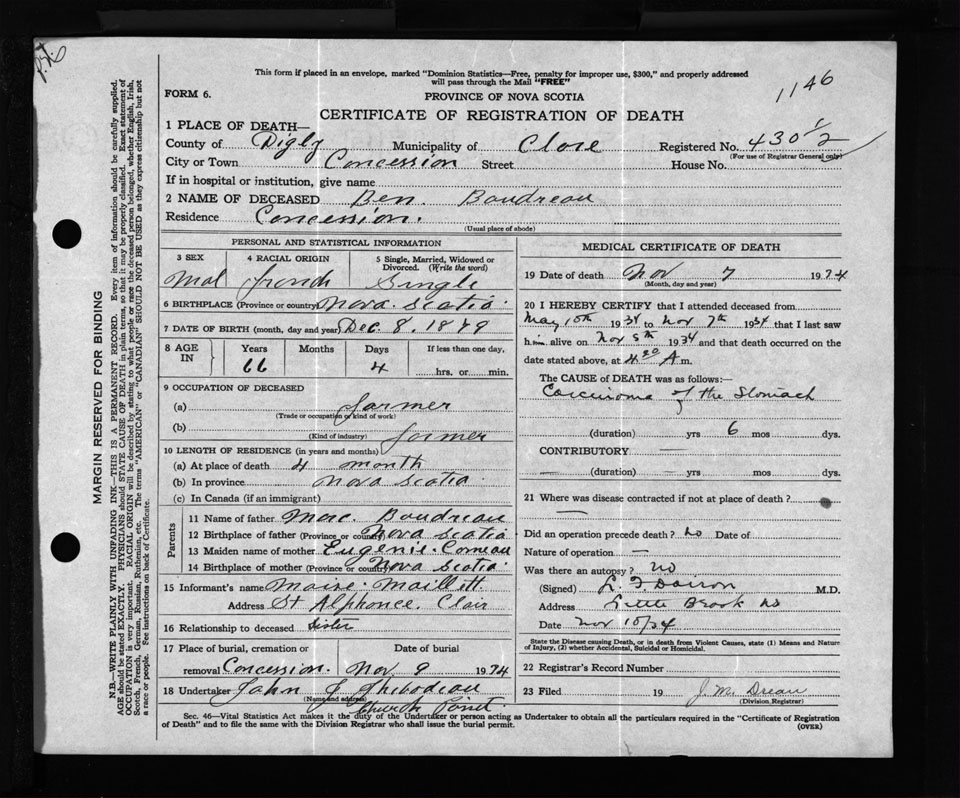 P.H.
1146
This form if placed in an envelope, marked "Dominion Statistics—Free, penalty for improper use, $300," and properly addressed
will pass through the Mail "FREE"
FORM 6.
PROVINCE OF NOVA SCOTIA
CERTIFICATE OF REGISTRATION OF DEATH
1 PLACE OF DEATH—
County of Digby Municipality of Clare Registered No. 430 1/2
(For use of Registrar General only)
City or Town Concession Street House No.
If in hospital or institution, give name
2 NAME OF DECEASED Ben. Boudreau
Residence Concession.
(Usual place of abode)
PERSONAL AND STATISTICAL INFORMATION
3 SEX 4 RACIAL ORIGIN 5 Single, Married, Widowed or
Divorced. (Write the word)
Mal french Single
6 BIRTHPLACE (Province or country) Nova Scotia
7 DATE OF BIRTH (month, day and year) Dec 8. 1879
8 AGE IN Years Months Days If less than one day,
66 4 hrs. or min.
9 OCCUPATION OF DECEASED
(a) farmer
(Trade or occupation or kind of work)
(b) farmer
(Kind of industry)
10 LENGTH OF RESIDENCE (in years and months)
(a) At place of death 4 month
(b) In province Nova Scotia
(c) In Canada (if an immigrant)
Parents
11 Name of father Marc. Boudreau
12 Birthplace of father (Province or country) Nova Scotia
13 Maiden name of mother Eugenie Comeau
14 Birthplace of mother (Province or country) Nova Scotia
15 Informant's name Maise Maillett
Address St Alphonce. Clair
16 Relationship to deceased Sister
17 Place of burial, cremation or Date of burial
removal Concession. Nov 9 1934
18 Undertaker John J Thibodeau
(Name and address)
Church Point
MEDICAL CERTIFICATE OF DEATH
19 Date of death Nov 7 1934
(Month, day and year)
20 I HEREBY CERTIFY that I attended deceased from
May 10th 1934 to Nov 7th 1934 that I last saw
him alive on Nov 5th 1934 and that death occurred on the
date stated above, at 4 20 A m.
The CAUSE of DEATH was as follows:—
Carcinoma of the Stomach
(duration) yrs 6 mos dys.
CONTRIBUTORY —
— (duration) — yrs mos dys.
21 Where was disease contracted if not at place of death?
—
Did an operation precede death? No Date of
Nature of operation —
Was there an autopsy? No
(Signed) M.D.
Address Little Brook NS
Date Nov 10/34
State the Disease causing Death, or in death from Violent Causes, state (1) Means and Nature
of Injury, (2) whether Accidental, Suicidal or Homicidal.
22 Registrar's Record Number
23 Filed 19 J. M.
(Division Registrar)
Sec. 46—Vital Statistics Act makes it the duty of the Undertaker or person acting as Undertaker to obtain all the particulars required in the "Certificate of Registration
of Death" and to file the same with the Division Registrar who shall issue the burial permit.
(OVER)
MARGIN RESERVED FOR BINDING
N.B.—WRITE PLAINLY WITH UNFADING INK—THIS IS A PERMANENT RECORD. Every item of information should be carefully supplied.
AGE should be stated EXACTLY. PHYSICIANS should STATE CAUSE OF DEATH in plain terms, so that it may be properly classified. Exact statement of
OCCUPATION is very important. RACIAL ORIGIN will be described by stating to what people or race the deceased person belonged, whether English, Irish,
Scotch, French, German, Russian, Ruthenian, etc. The terms "AMERICAN" or "CANADIAN" SHOULD NOT BE USED as they express citizenship but not
a race or people. See instructions on back of Certificate.